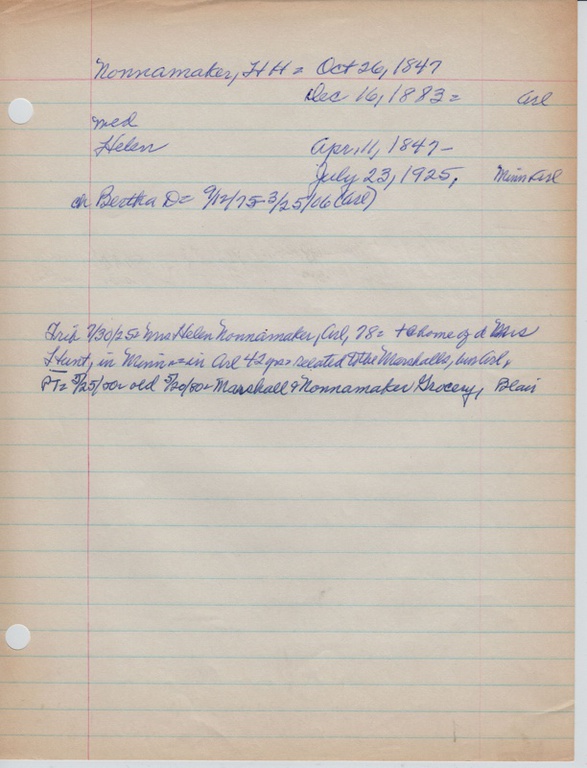 Nonnamaker, H H = Oct 26, 1847
Dec 16, 1883 = Arl
med
Helen Apr. 11, 1847 -
July 23, 1925, Minn Arl
ch Bertha D = 9/12/75 - 3/25/06 (Arl)
Trib 7/30/25 = Mrs Helen Nonnamaker, Arl, 78 = + @ home of d Mrs
Hunt, in Minn = in Arl 42 yrs = related to the Marshalls, bur Arl,
PT = 5/25/00 old 5/20/80 = Marshall & Nonnamaker Grocery, Blair